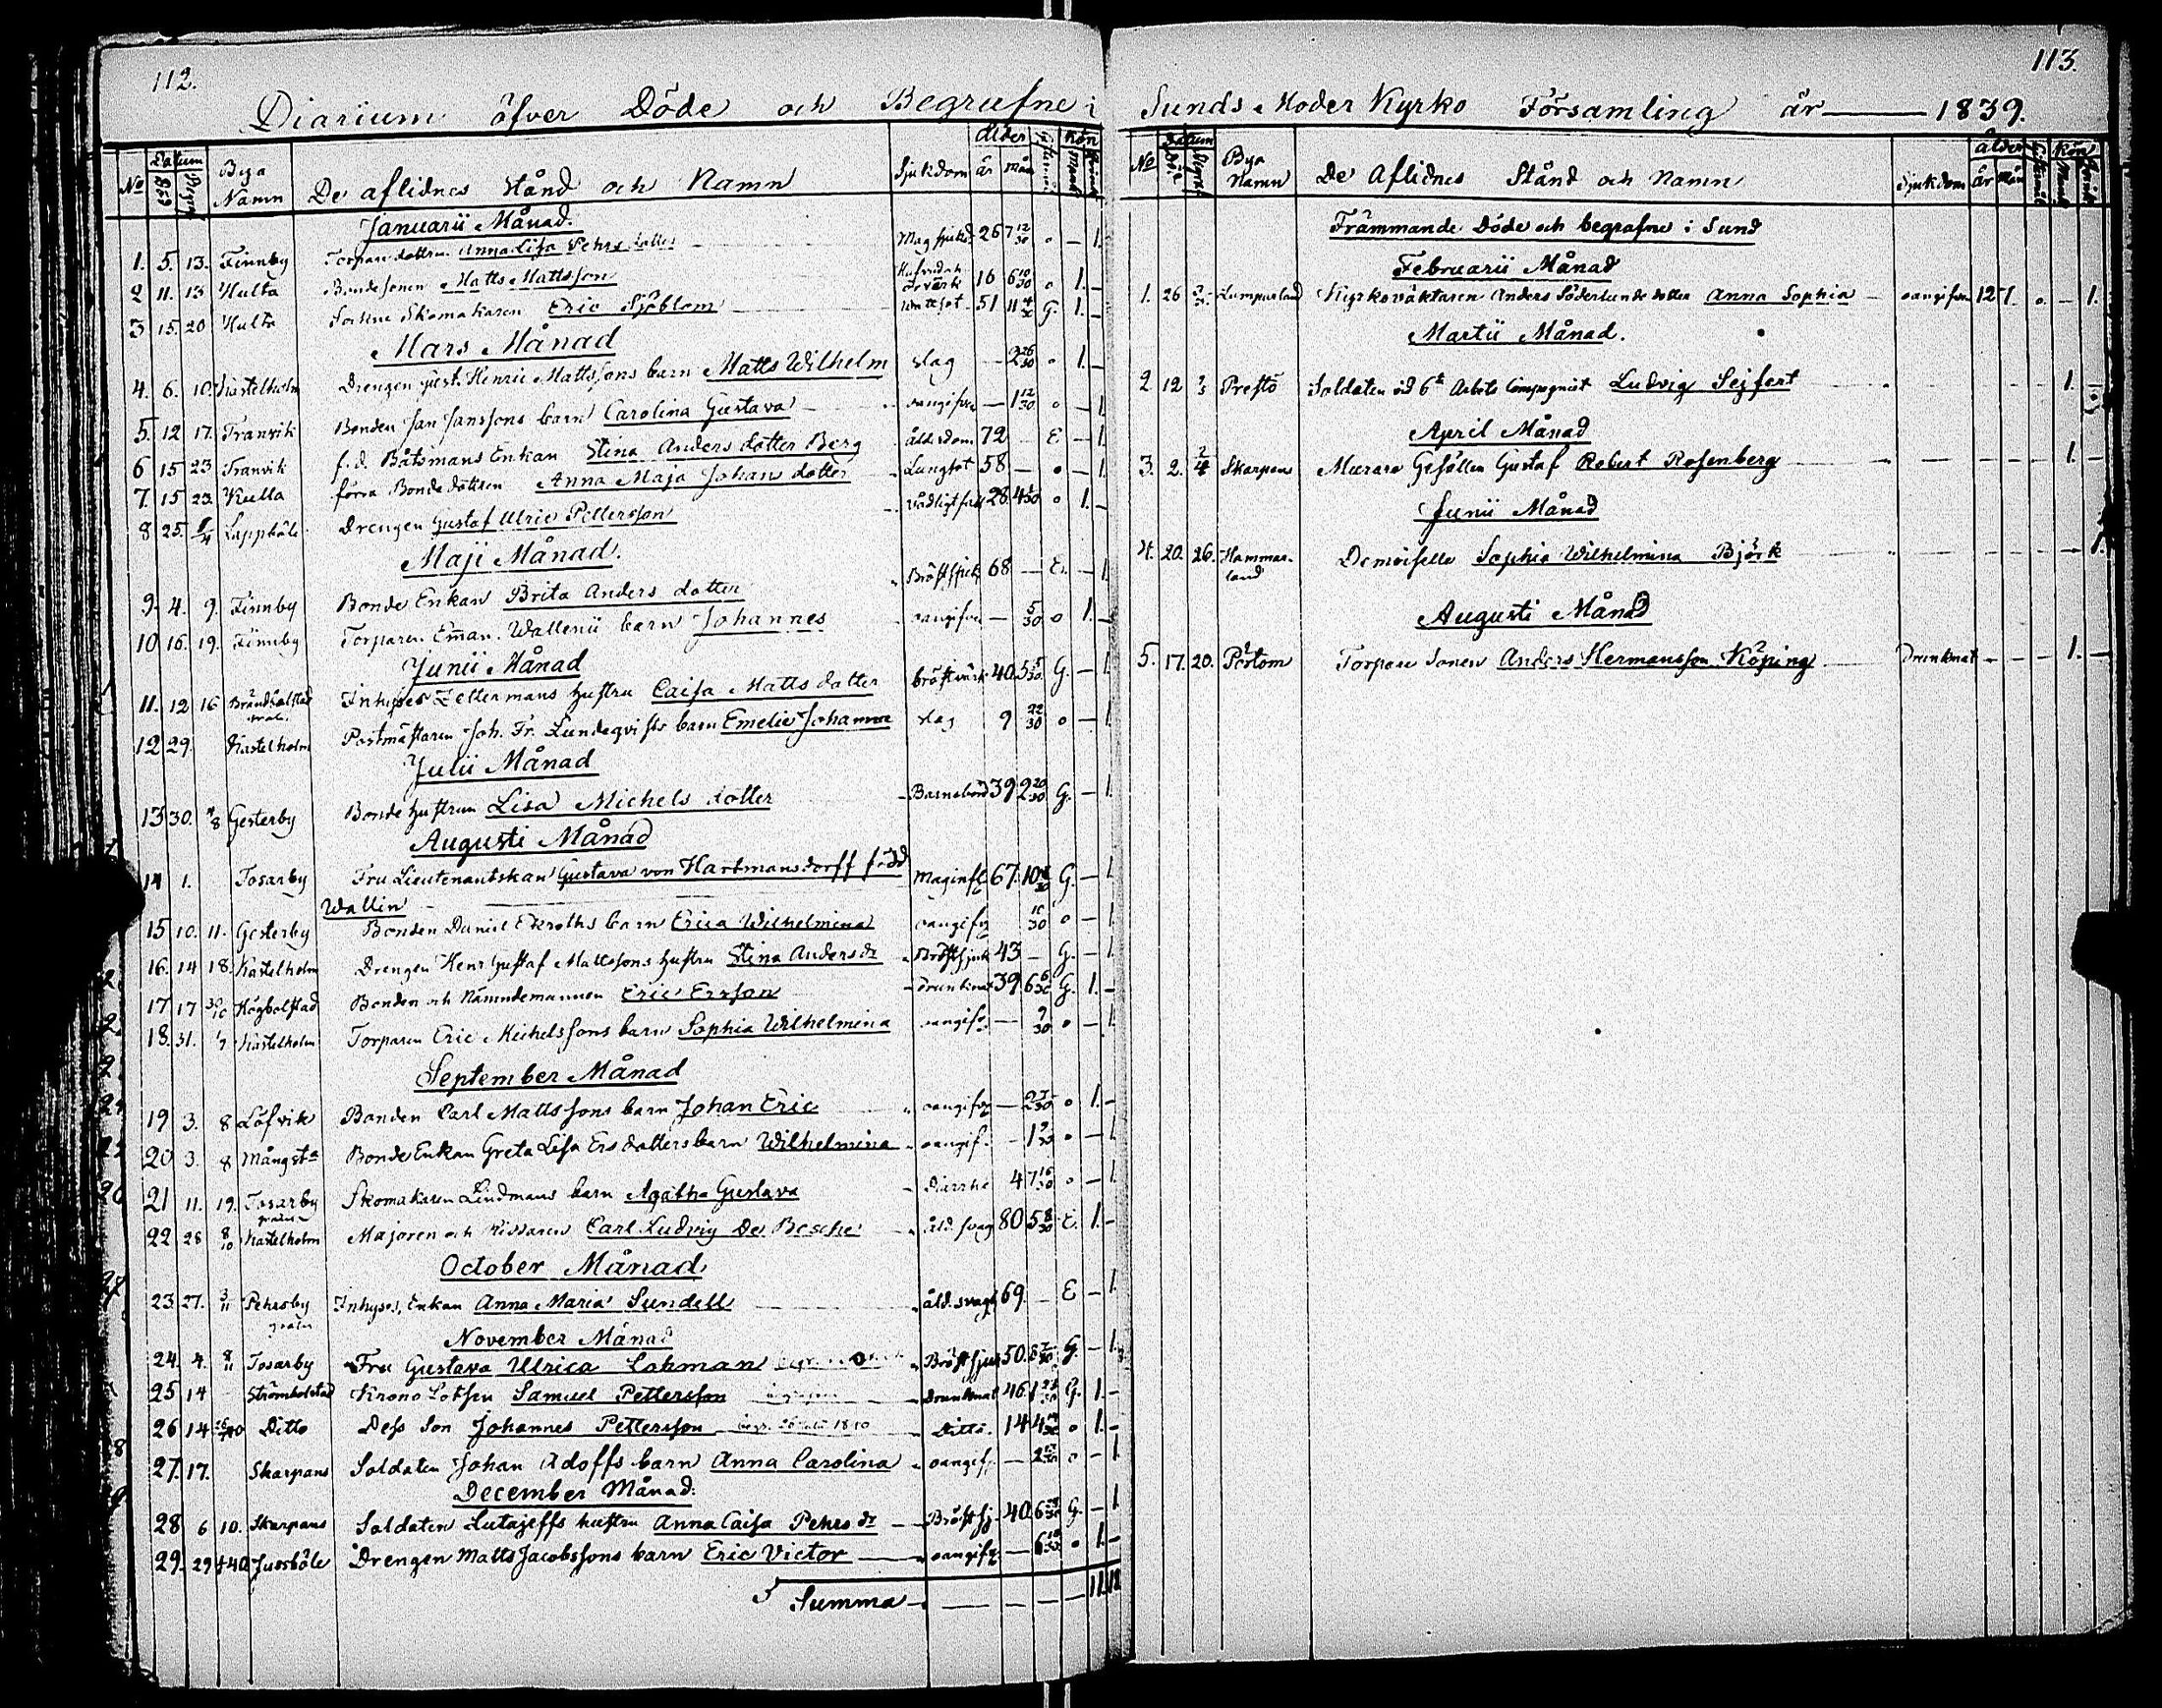 112.
Diarium öfver Döde och Begrafne i
No Datum Död Begr. Bya Namn De aflidnes Stånd och Namn Sjukdom ålder år mån Kön
Januarii Månad.
1. 5. 13. Finnby Torpare dottren Anna Lisa Pehrs dotter Mag sjukd. 26 7 12/30 o — 1.
2 11. 13 Hulta Bonde Sonen Matts Mattsson 16 6 10/30 o 1. —
3 15. 20 Hulta Socknе Skomakaren Eric Sjöblom Wattsot 51 11 G. 1. —
Mars Månad
4. 6. 10. Kastelholm Drengen Gust. Henric Mattssons barn Matts Wilhelm slag — 2 26/30 o 1. —
5. 12 17. Tranvik Bonden Jan Janssons barn Carolina Gustava oangifven — 1 12/30 o — 1.
6 15 23 Tranvik f.d. Båtsmans Enkan Stina Anders dotter Berg ålderdom 72 — E — 1.
7. 15 23. Kulla förra Bonde dottren Anna Maja Johans dotter Lungsot 58 — o — 1.
8 25. Lappböle Drengen Gustaf Ulric Pettersson vådligt fall 28. 4 o 1. —
Maji Månad.
9. 4. 9. Finnby Bonde Enkan Brita Anders dotter Bröstsjuk 68 — E. — 1.
10 16. 19. Finnby Torparen Eman. Wallenii barn Johannes oangifven — 5/30 o 1. —
Junii Månad
11. 12 16 Brändbolstad Inhyses Zettermans hustru Caisa Matts dotter bröstvärk 40. 5 G. — 1.
12 29. Kastelholm Postmästaren Joh. Fr. Lundeqvists barn Emelie Johanna slag 9 22/30 o — 1.
Julii Månad
13 30. 4/8 Gesterby Bonde hustrun Lisa Michels dotter Barnsbörd 39 2 20/30 G. — 1.
Augusti Månad
14 1. Tosarby Fru Lieutenantskan Gustava von Hartmansdorff född Maginfl. 67. 10 G. — 1.
Wallin
15 10. 11. Gesterby Bonden Daniel Ekroths barn Erica Wilhelmina oangifv. 10/30 o — 1.
16. 14 18. Kastelholm Drengen Henr Gustaf Mattssons hustru Stina Andersdr Bröstsjuk 43 — G. — 1.
17 17 30/10 Högbolstad Bonden och Nämndemannen Eric Ersson Drunknat 39 6 6/30 G. 1. —
18. 31. 1/9 Kastelholm Torparen Eric Michelssons barn Sophia Wilhelmina oangifv. — 9/30 o — 1.
September Månad
19 3. 8 Löfvik Bonden Carl Mattssons barn Johan Eric oangifv. — 2 o 1. —
20 3. 8 Mångsta Bonde Enkan Greta Lisa Ers dotters barn Wilhelmina oangif. — 1 o — 1.
21 11. 19. Tosarby Skomakaren Lindmans barn Agatha Gustava Diarrhé 4 7 16/30 o — 1.
22 28 8/10 Kastelholm Majoren och Riddaren Carl Ludvig De Besche åld. svag 80 5 8/30 E. 1. —
October Månad
23. 27. 3/11 Pehrsby Inhyses Enkan Anna Maria Sundell åld. svagh 69. — E — 1.
November Månad
24. 4. 8/11 Tosarby Fru Gustava Ulrica Lohman Bröstsjuk 50. G. — 1.
25 14 — Strömbolstad Krono Lotsen Samuel Pettersson Drunknat 46. 1 G. 1. —
26 14 Ditto Dess Son Johannes Pettersson Ditto. 14 4 o 1. —
27. 17. Skarpans Soldaten Johan Adoffs barn Anna Carolina oangif. — 2 o — 1.
December Månad.
28 6 10. Skarpans Soldaten Lutajeffs hustru Anna Caisa Pehrsdr Bröstsj. 40. 6 G. — 1.
29. 29 Jussböle Drengen Matts Jacobssons barn Eric Victor oangifv. — 6 o 1. —
Summa — 11. 18
113.
Sunds Moder Kyrko Församling år — 1839.
No Datum Död Begraf. Bya Namn De Aflidnes Stånd och Namn Sjukdom ålder år Mån Kön
Främmande Döde och begrafne i Sund
Februarii Månad
1. 26 Lumparland Kyrkoväktaren Anders Söderlunds dotter Anna Sophia oangifven 12 1. o. — 1.
Martii Månad.
2 12 Prestö Soldaten vid 6te Arbets Compagniet Ludvig Sejfert 1. —
April Månad
3. 2. 2/4 Skarpans Murare Gesällen Gustaf Robert Rosenberg 1. —
Junii Månad
4. 20. 26. Hammarland Demoiselle Sophia Wilhelmina Björk — 1.
Augusti Månad
5. 17. 20. Pörtom Torpare Sonen Anders Hermansson Köping Drunknat — — — 1. —